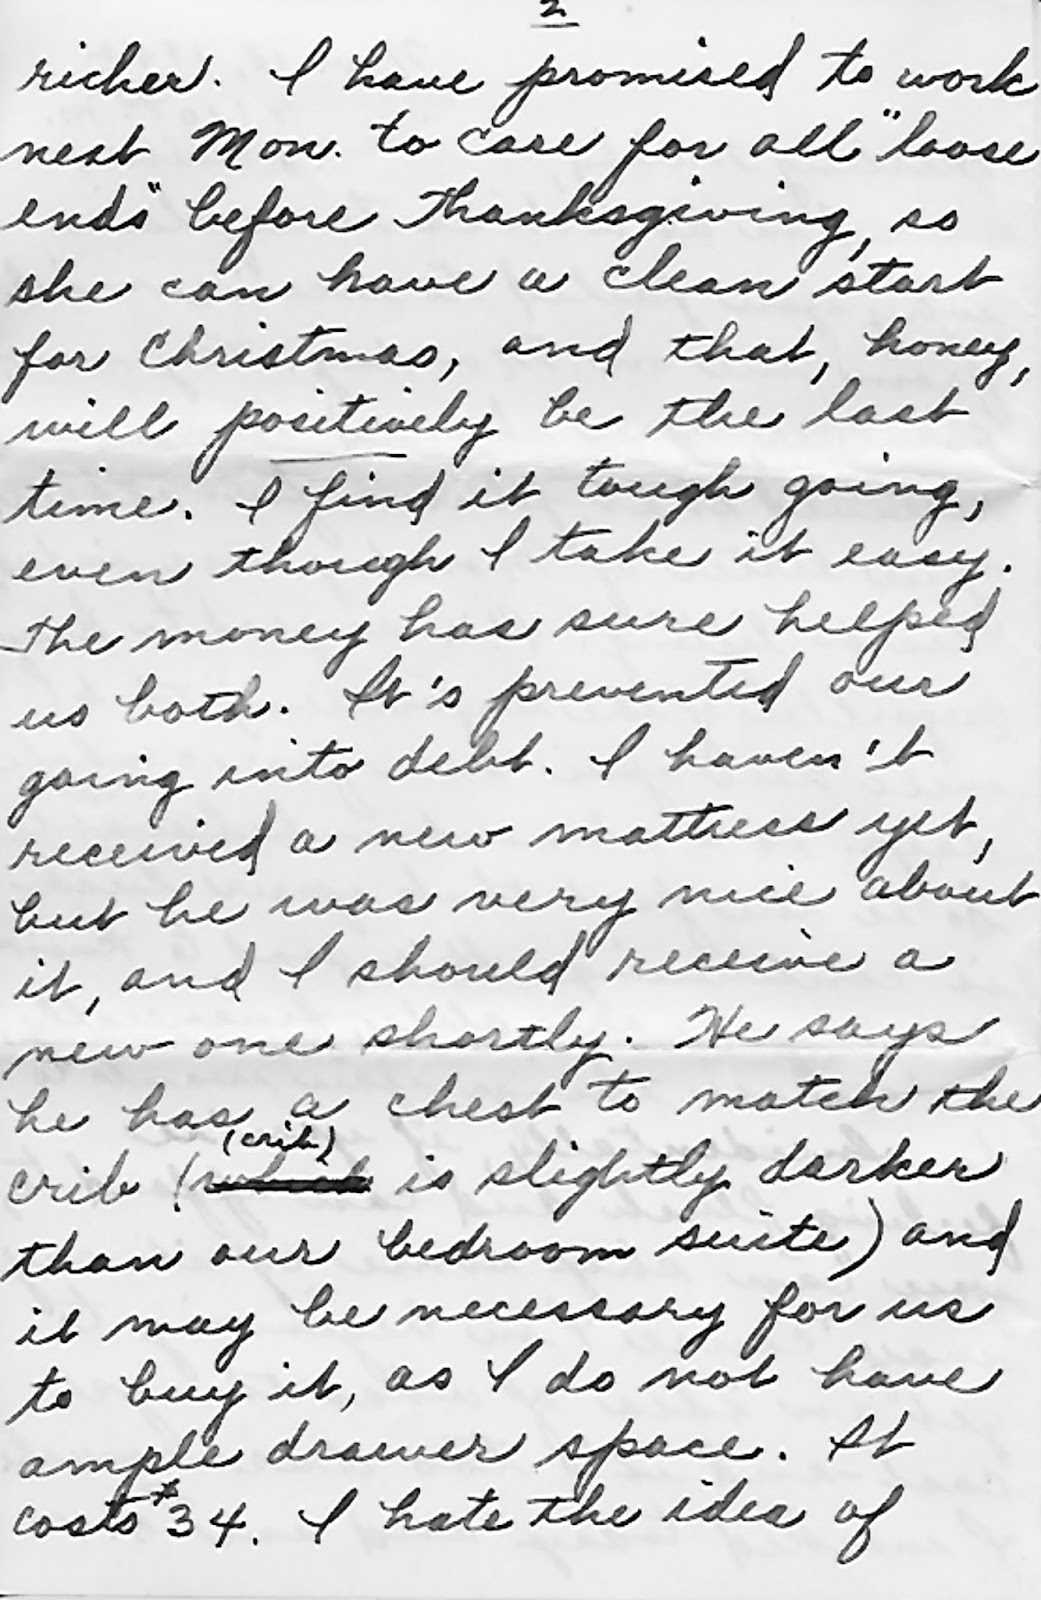 2
richer. I have promised to work
next Mon. to care for all "loose
ends" before Thanksgiving, so
she can have a clean start
for Christmas, and that, honey,
will positively be the last
time. I find it tough going,
even though I take it easy.
The money has sure helped
us both. It's prevented our
going into debt. I haven't
received a new mattress yet,
but he was very nice about
it, and I should receive a
new one shortly. He says
he has a chest to match the
(crib)
crib ( is slightly darker
than our bedroom suite) and
it may be necessary for us
to buy it, as I do not have
ample drawer space. It
costs $34. I hate the idea of